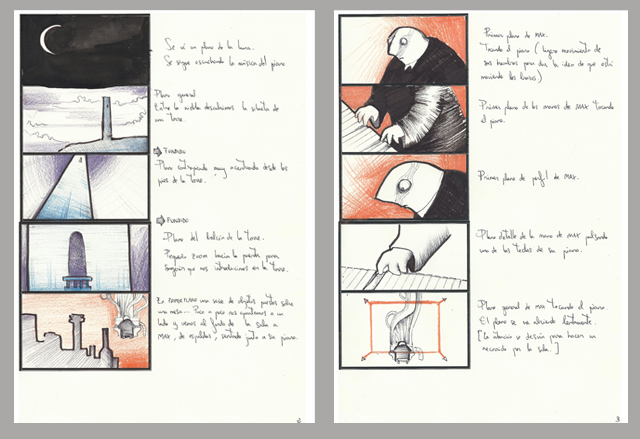 Se ve un plano de la luna.
Se sigue escuchando la música del piano
Plano general
Entre la niebla descubrimos la silueta de
una torre.
FUNDIDO
Plano contrapicado muy acentuado desde los
pies de la torre.
FUNDIDO
Plano del balcón de la torre.
Pequeño zoom hacia la puerta para
sugerir que nos introducimos en la torre.
una serie de objetos puestos sobre
una mesa... Poco a poco nos a un
lado y vemos al fondo de la sala a
MAX, de espaldas, sentado junto a su piano.
2
Primer plano de MAX.
Tocando el piano (ligero movimiento de
sus hombros para dar la idea de que está
moviendo los brazos)
Primer plano de las manos de MAX tocando
el piano.
Primer plano de perfil de MAX.
Plano detalle de la mano de MAX pulsando
una de las teclas de su piano.
Plano general de MAX tocando el piano.
El plano se va abriendo lentamente.
[La intención es para hacer un
recorrido por la sala.]
3